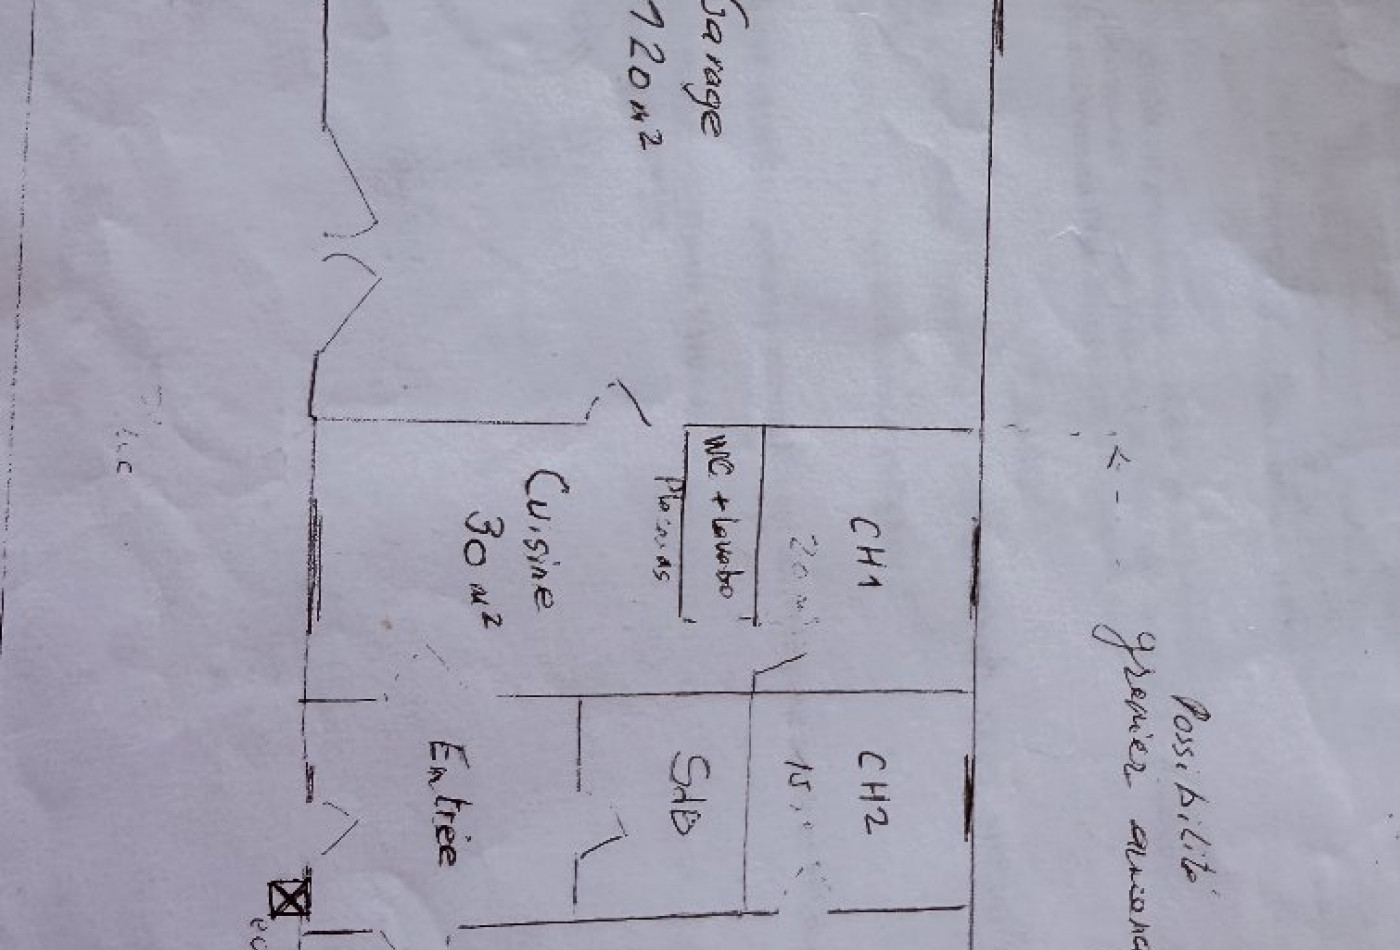 Garage
120 m²
WC + Lavabo
Cuisine
30 m²
CH1
20 m²
Entrée
SdB
CH2
15
Possibilité
grenier